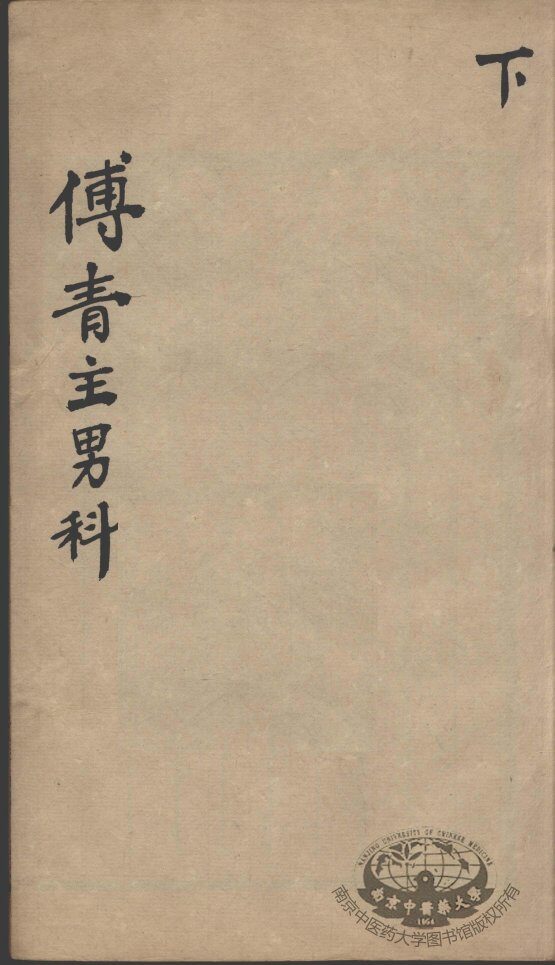 下
傅青主男科
NANJING UNIVERSITY OF CHINESE MEDICINE
南京中醫藥大學
1954
南京中医药大学图书馆版权所有